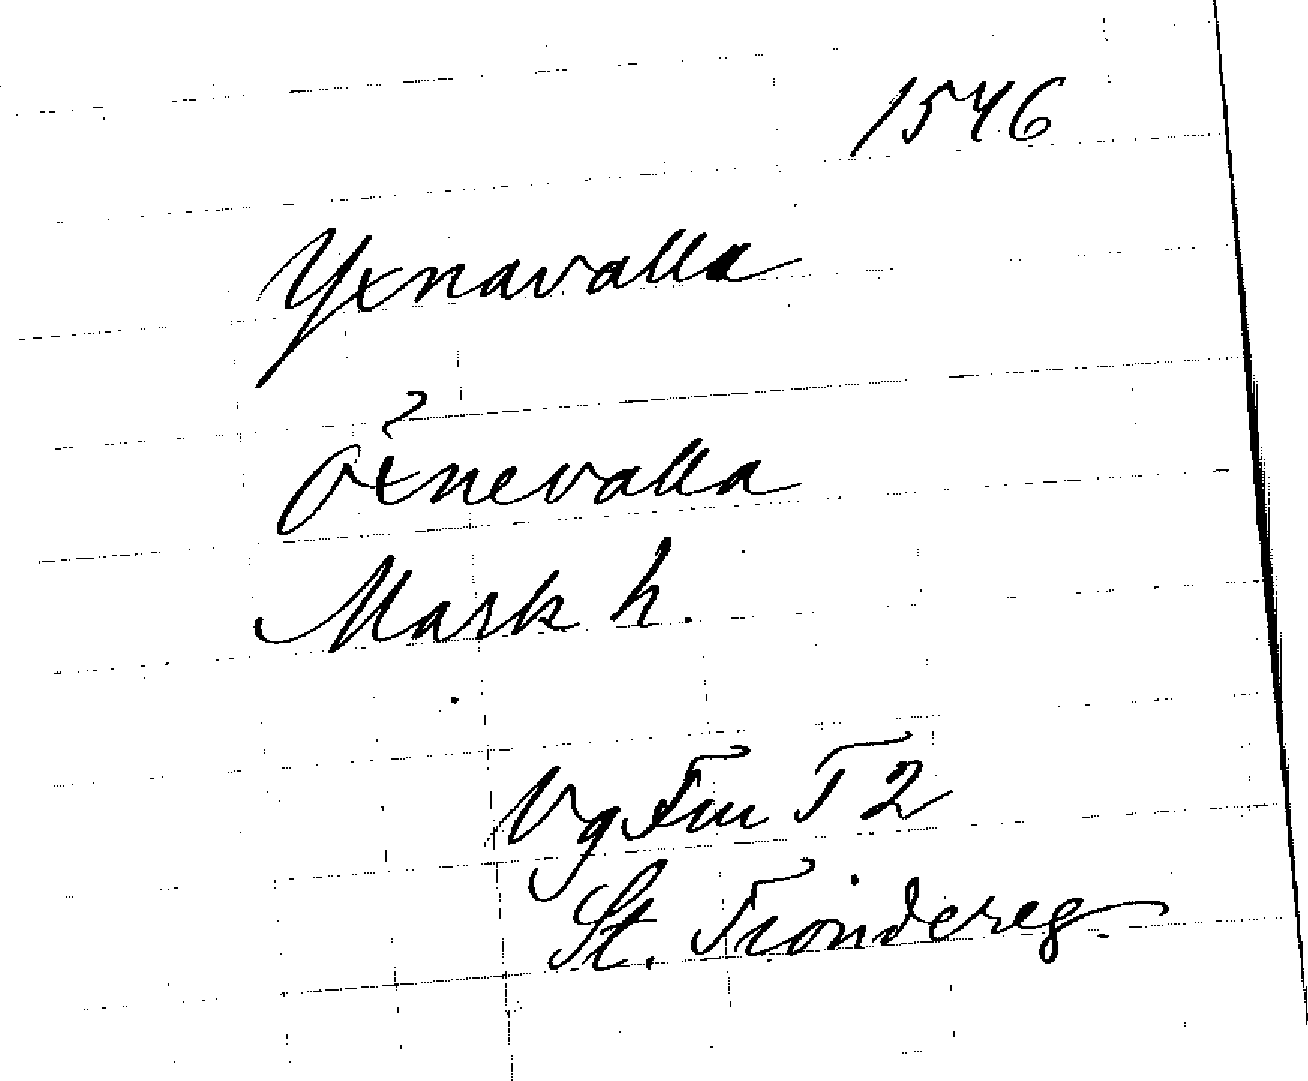 1546
Yxnavalla
Öxnevalla
Mark h.
Vg Fin T 2
St. Tiondereg.